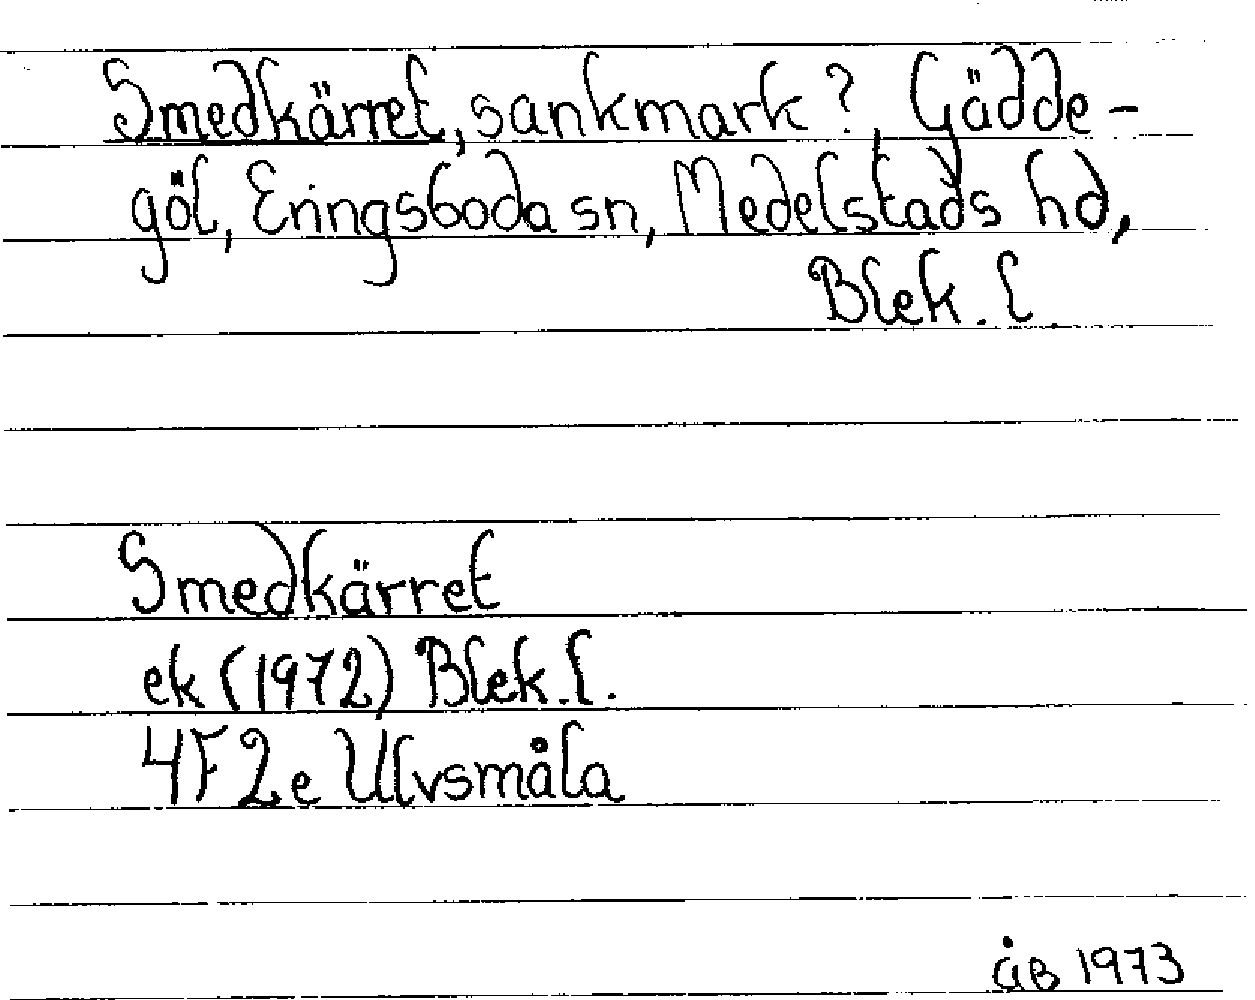 Smedkärret, sankmark?, Gädde-
göl, Eringsboda sn, Medelstads hd,
Blek. l.
Smedkärret
ek (1972) Blek. l.
4F 2e Ulvsmåla
åB 1973